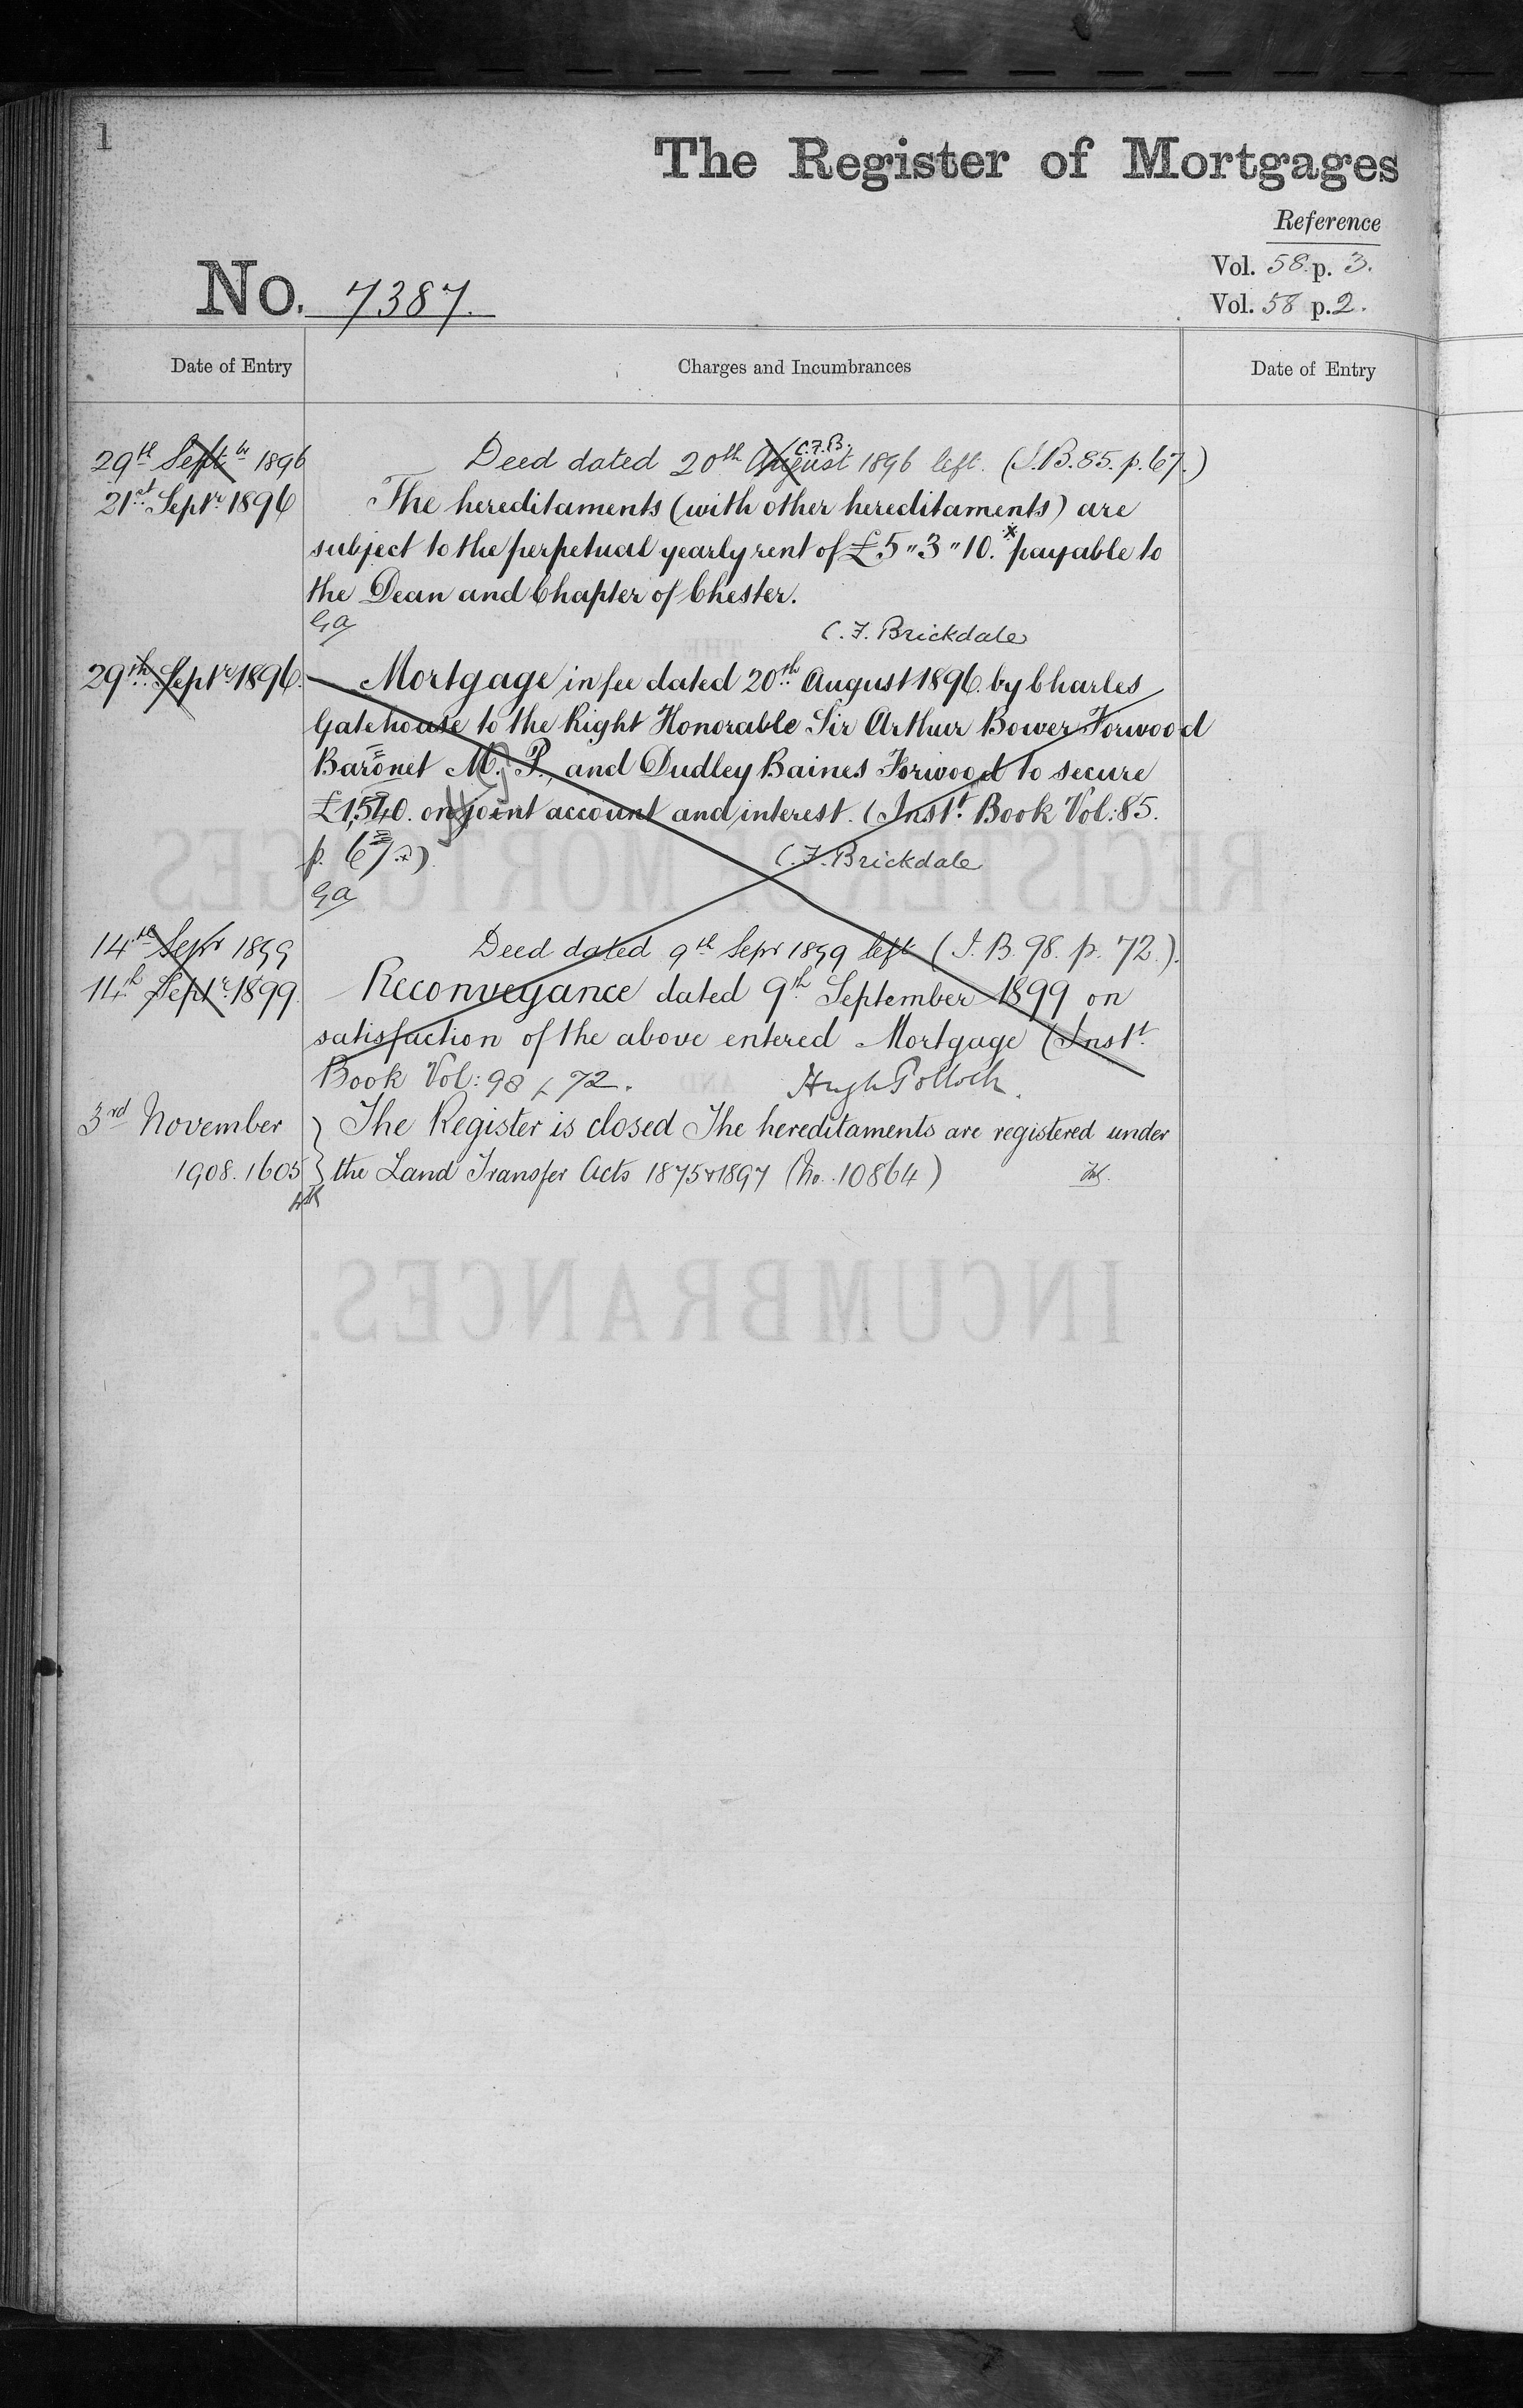 1
The Register of Mortgages
Reference
Vol. 58. p. 3.
Vol. 58 p. 2.
No. 7387.
Date of Entry
Charges and Incumbrances
Date of Entry
C.F.B.
29th Septbr 1896 Deed dated 20th August 1896 left. (I.B. 85. p. 67.)
21st Septr 1896 The hereditaments (with other hereditaments) are
subject to the perpetual yearly rent of £5"3"10. x payable to
the Dean and Chapter of Chester.
Ga C. F. Brickdale
29th Septr 1896. Mortgage in fee dated 20th August 1896 by Charles
Gatehouse to the Right Honorable Sir Arthur Bower Forwood
Baronet M. P., and Dudley Baines Forwood to secure
£1,540. on joint account and interest. (Inst. Book Vol: 85.
p. 67.)
C. F. Brickdale
Ga
14th Sepr 1899 Deed dated 9th Sepr 1899 left (I. B. 98. p. 72.).
14th Septr 1899. Reconveyance dated 9th September 1899 on
satisfaction of the above entered Mortgage (Inst.
Book Vol: 98 p 72. Hugh Pollock.
3rd November } The Register is closed The hereditaments are registered under
1908. 1605 } the Land Transfer Acts 1875 & 1897 (No. 10864)
REGISTER OF MORTGAGES
THE
AND
INCUMBRANCES.